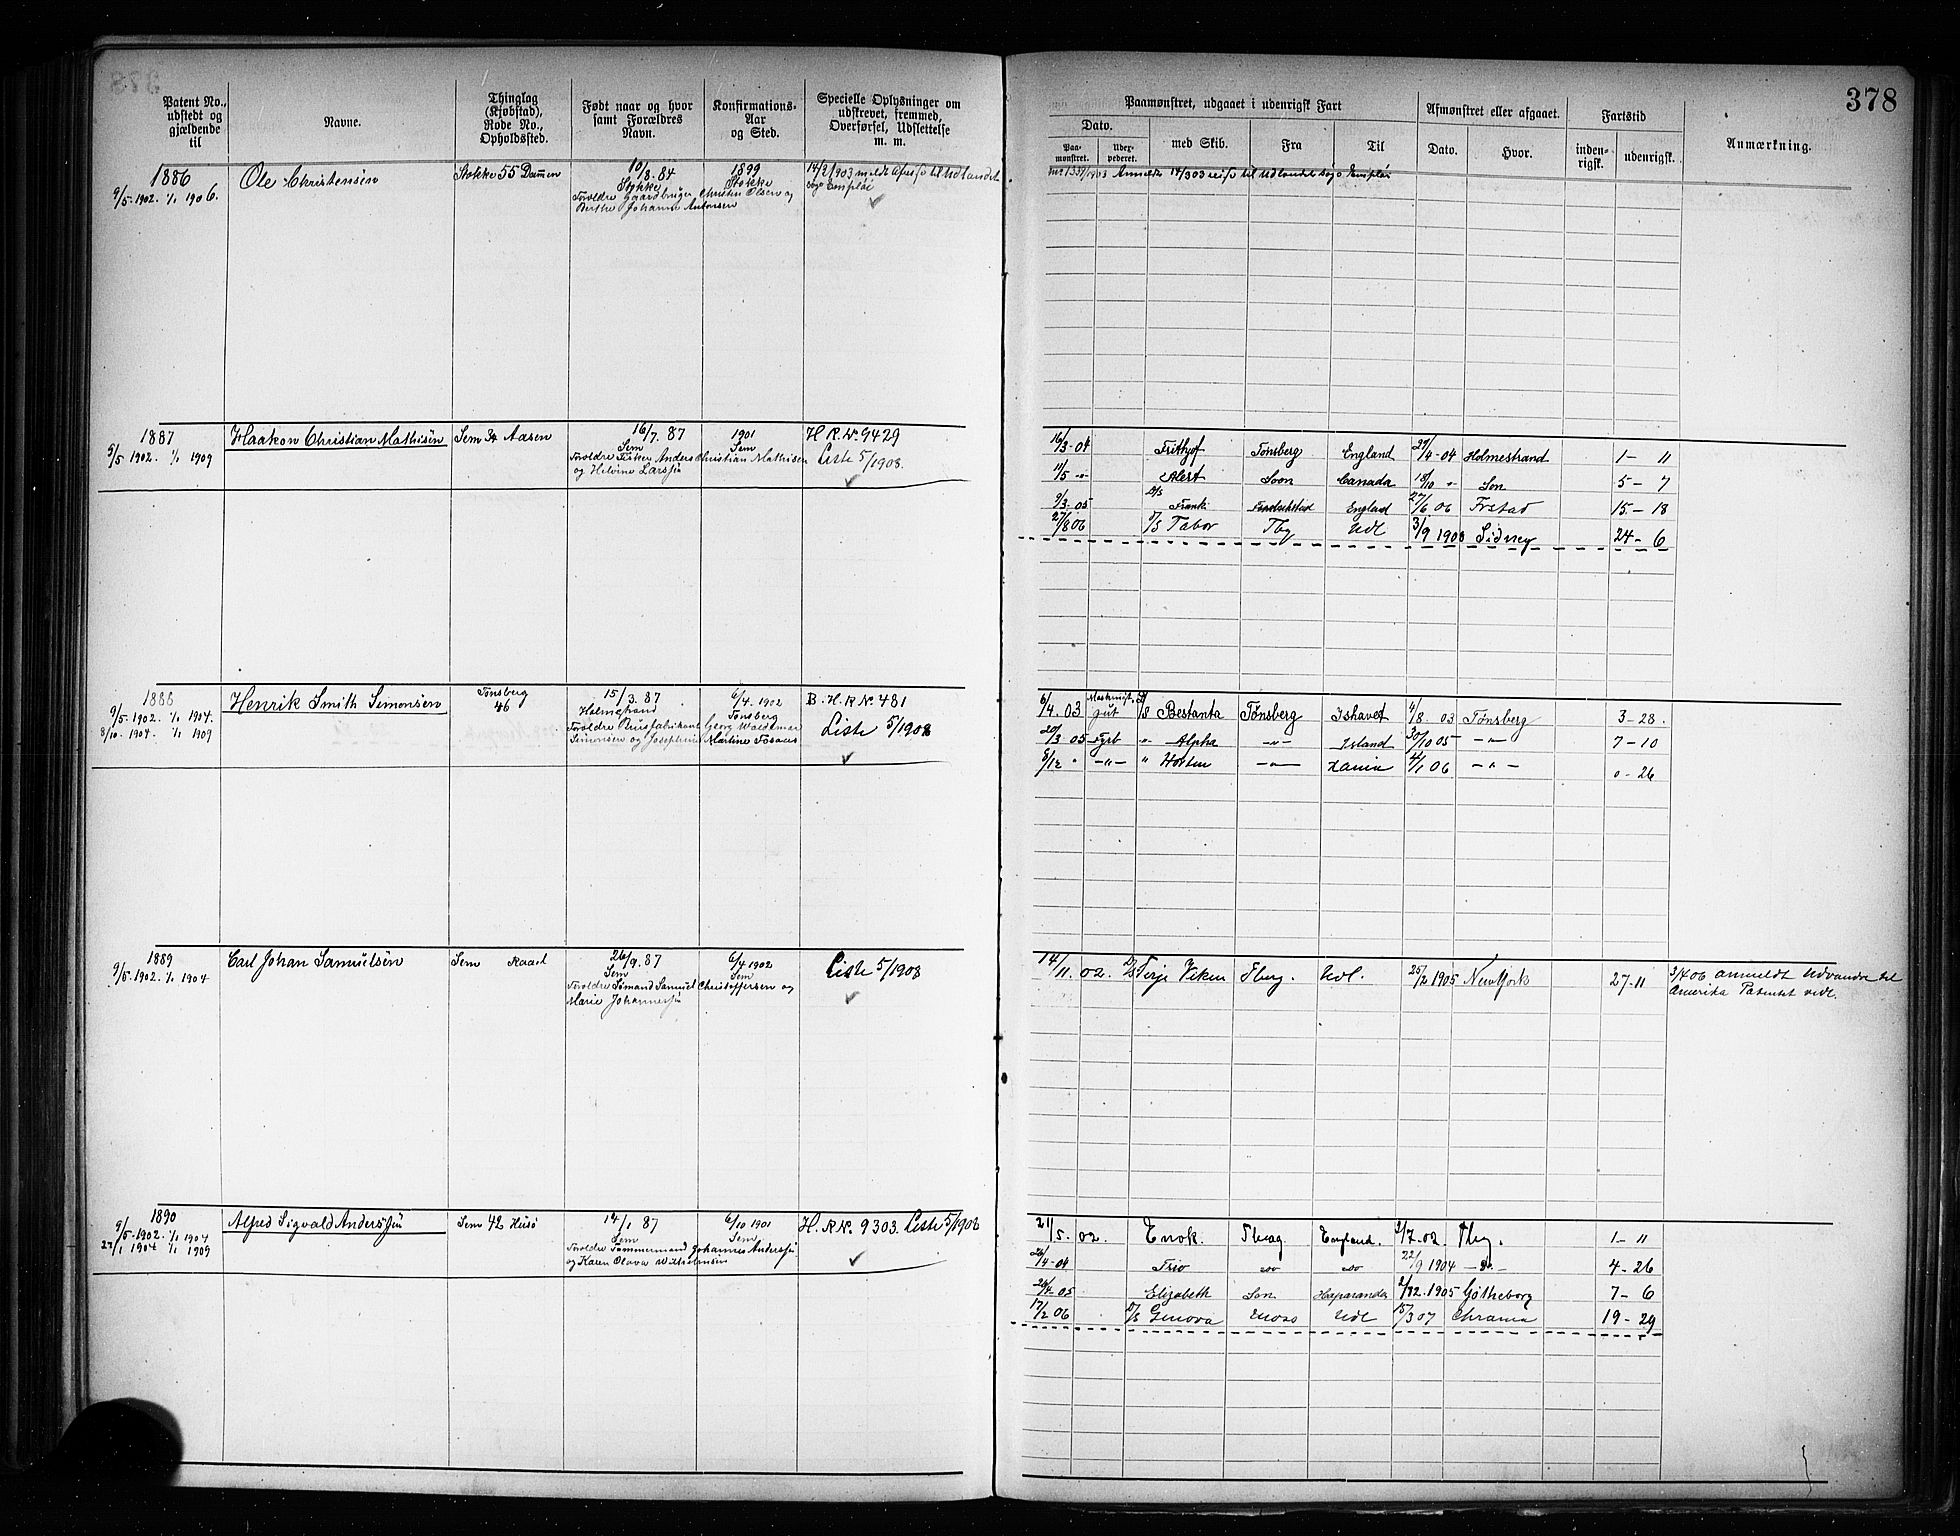 378
Patent No., udstedt og gjældende til
Navne.
Thinglag (Kjøbstad), Rode No., Opholdssted.
Født naar og hvor samt Forældres Navn.
Konfirmations-Aar og Sted.
Specielle Oplysninger om udskrevet, fremmed, Overførsel, Udslettelse m. m.
Paamønstret, udgaaet i udenrigsk Fart
Dato.
Paa-mønstret.
med Skib.
Fra
Til
Afmønstret eller afgaaet.
Dato.
Hvor.
Fartstid
inden-rigsk.
udenrigsk.
Anmærkning.
1886
9/5-1902. 1/1 1906.
Ole Christensen
Stokke 55 Dammen
10/8.84
Stokke
Forældre Gaardbruger Christen Olsen og
Berthe Johanne Antonsen
1899
Stokke
14/2 1903
til Udlandet
1887
9/5 1902. 1/1 1909
Haakon Christian Mathisen
Sem 34 Aasen
16/7. 87
Sem
Forældre Fisker Anders Christian Mathisen
og Helvine Larsen
1901
Sem
H R. No. 9429
Liste 5/1908.
16/3-04 Frithjof Tønsberg England 27/4-04 Holmestrand 1- 11
11/5 -"- Alert Soon Canada 18/10 " Son 5- 7
9/3-05 D/S England 27/6 06 Frstad 15-18
27/8 06 D/S Tabor Tbg Udl 3/9 1908 Sidney 24- 6
1888
9/5-1902. 1/1 1904.
8/10-1904. 1/1 1909
Henrik Smith Simonsen
Tønsberg
46
15/3. 87
Holmestrand
Simonsen og Josephine Martine
6/4. 1902
Tønsberg
Georg Waldemar
B. H. R No. 481
Liste 5/1908
6/4. 03 gut D/S Bestanta Tønsberg Ishavet 4/8. 03 Tønsberg 3-28.
20/3 05 Fyrb " Alpha -"- Island 30/10 05 -"- 7-10
8/12 " -"- " Horten -"- 4/1 06 -"- 0-26
1889
9/5-1902. 1/1 1904
Carl Johan Samuelsen
Sem
26/9. 87
Sem
Forældre Sømand Samuel Christoffersen og
Marie Johannesen
6/4 1902
Sem
Liste 5/1908
14/11. 02. D/S Terje Viken Tberg. Udl. 25/2 1905 New York 27-11
3/4 06 anmeldt Udvandre til
Amerika Patentet vedl.
1890
9/5-1902. 1/1 1904
27/1 1904 1/1 1909
Alfred Sigvald Anderssen
Sem 42 Husø
14/1 87
Sem
Forældre Tømmermand Johannes Anderssen
og Karen Olava Wilhelmsen
6/10 1901
Sem
H. R No. 9303. Liste 5/1908
21/5. 02. Enok. Tberg England. 2/7-02. Tbg. 1- 11
26/4-04 Trio do do 22/9 1904 -do- 4-26
05 Elizabeth Son Haparanda 1905 Gøtheborg 7- 6
17/2 06 D/S Genova Moss Udl 15/3 07 Chrania 19-29